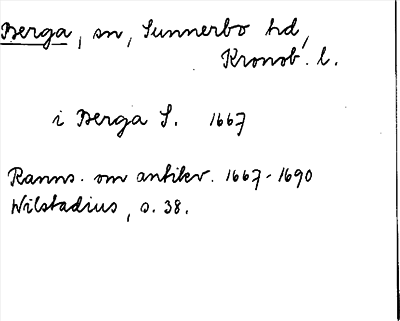 Berga, sn, Sunnerbo hd,
Kronob. l.
i Berga S. 1667
Ranns. om antikv. 1667-1690
Wilstadius, s. 38.